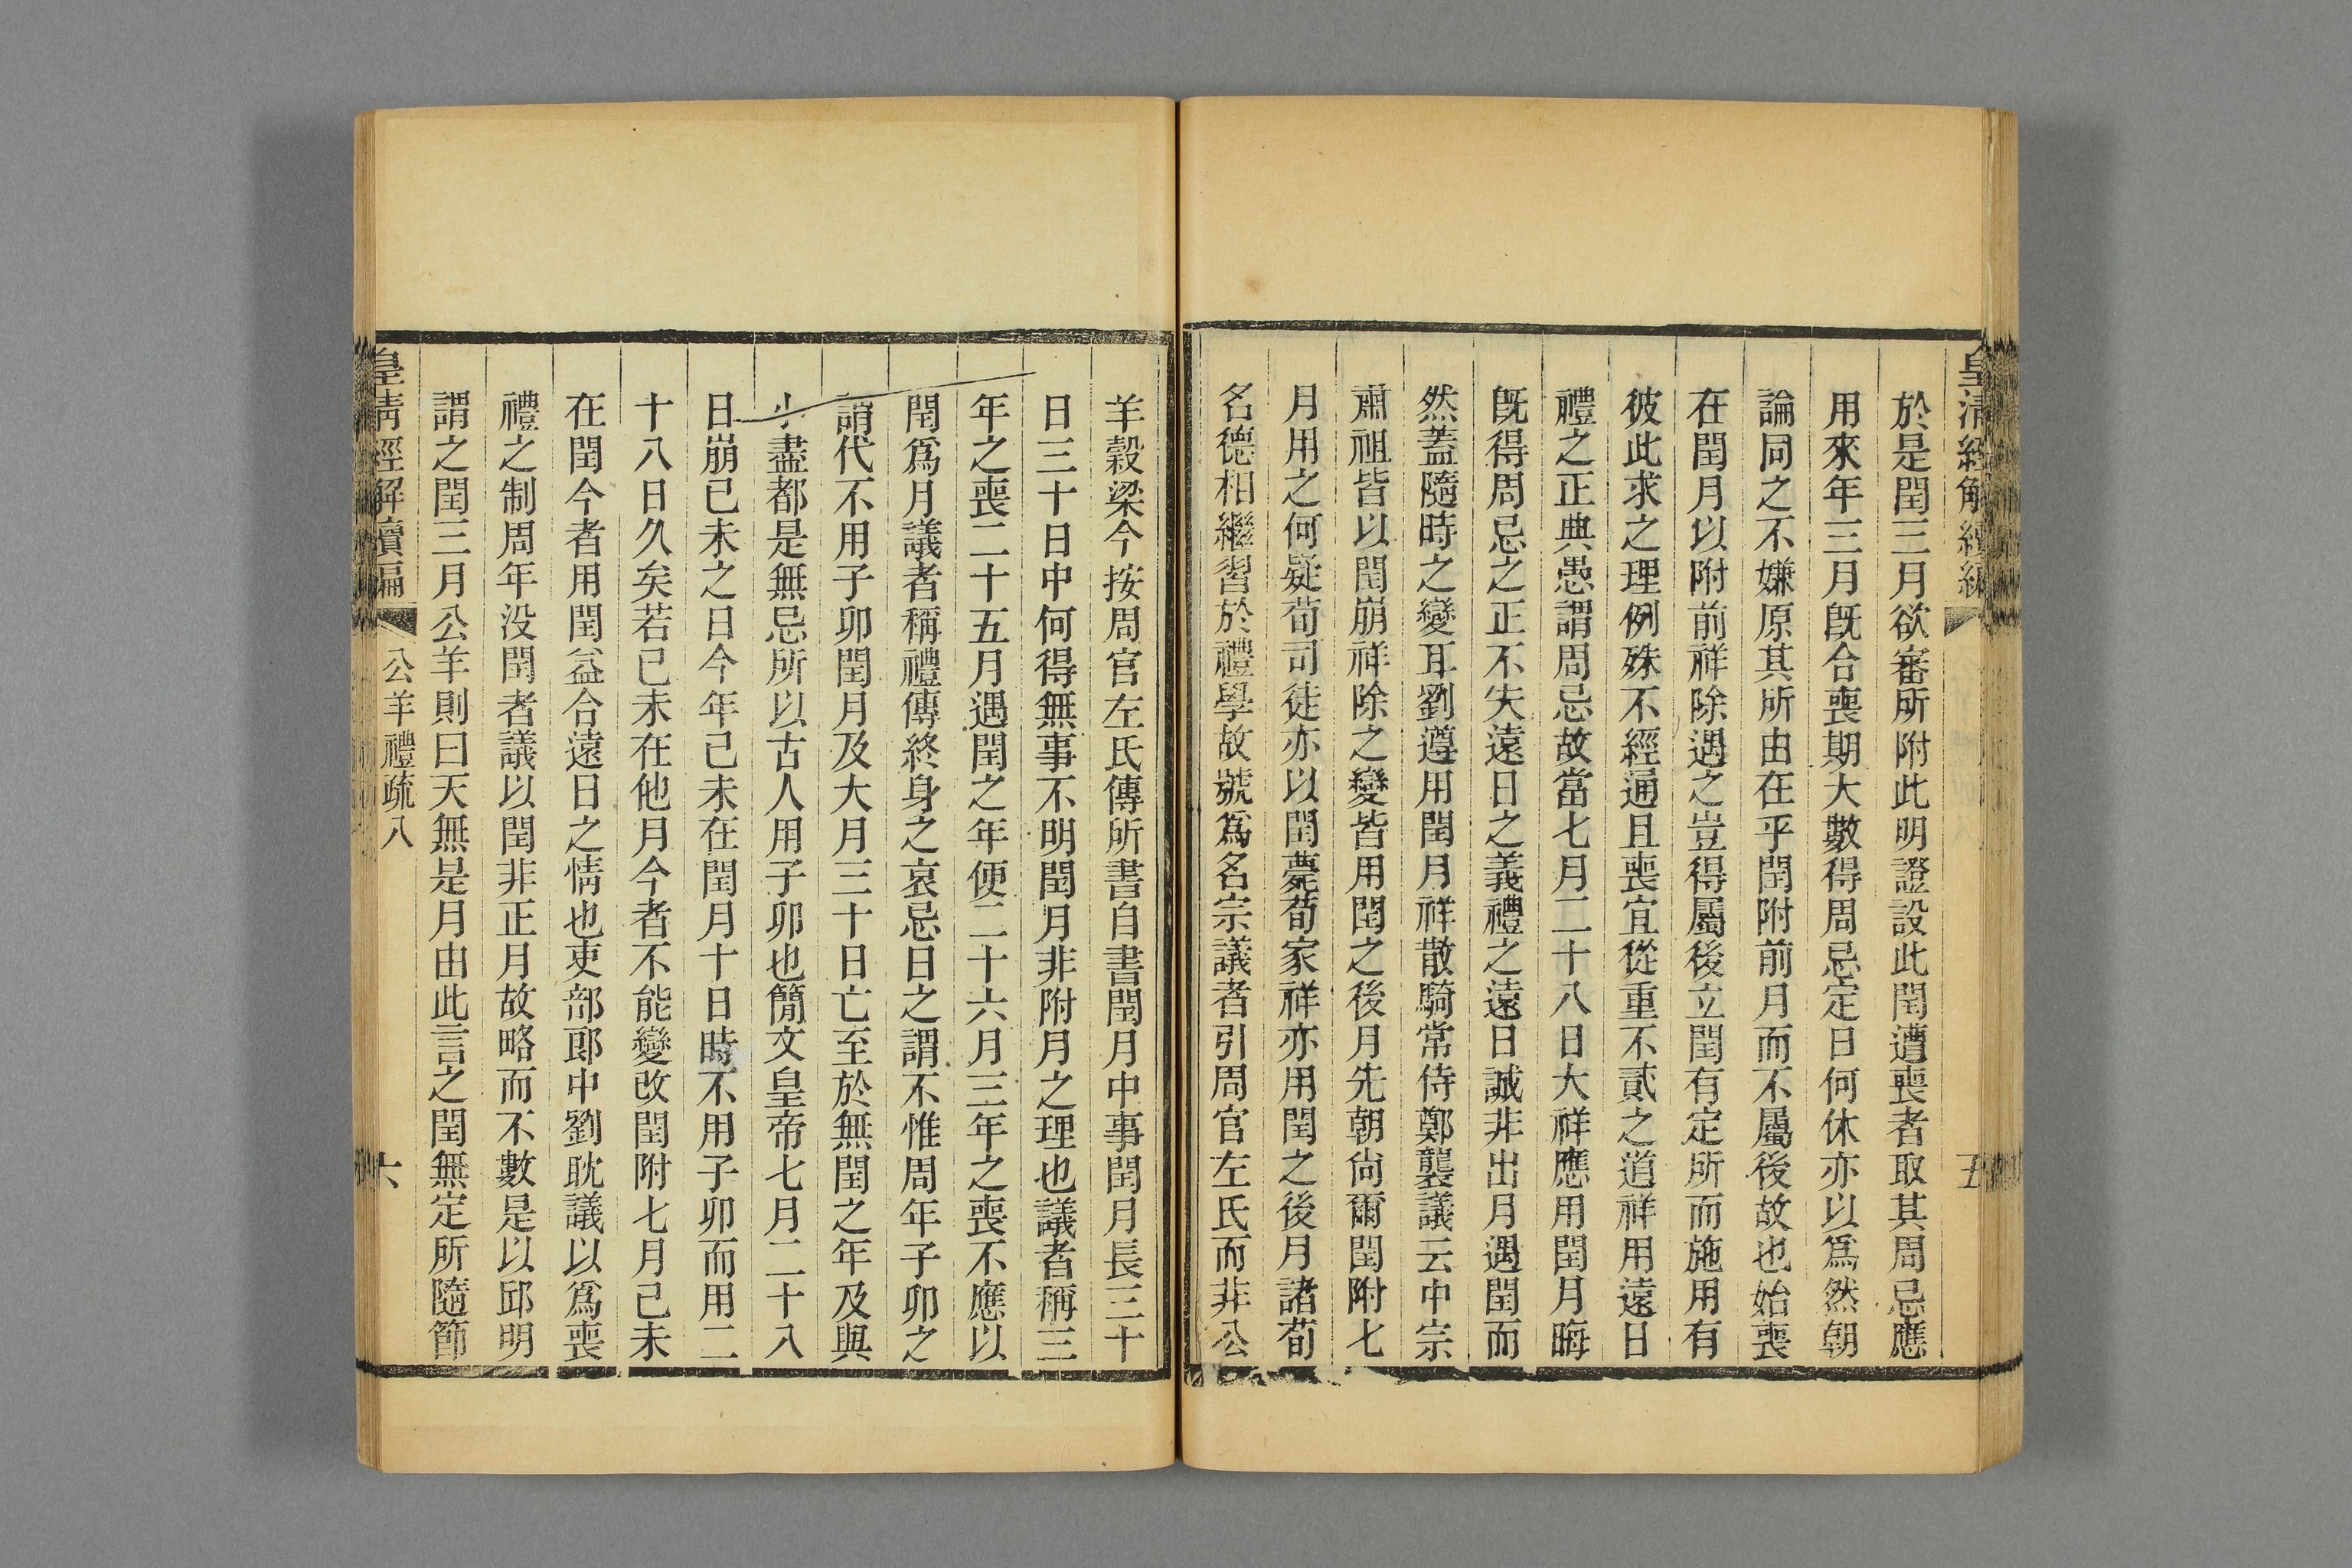 皇清經解續編
五
於是閏三月欲審所附此明證設此閏遭喪者取其周忌應
用來年三月旣合喪期大數得周忌定日何休亦以爲然朝
論同之不嫌原其所由在乎閏附前月而不屬後故也始喪
在閏月以附前祥除遇之豈得屬後立閏有定所而施用有
彼此求之理例殊不經通且喪宜從重不貳之道祥用遠日
禮之正典愚謂周忌故當七月二十八日大祥應用閏月晦
旣得周忌之正不失遠日之義禮之遠日誠非出月遇閏而
然蓋隨時之變耳劉遵用閏月祥散騎常侍鄭襲議云中宗
肅祖皆以閏崩祥除之變皆用閏之後月先朝尙爾閏附七
月用之何疑荀司徒亦以閏薨荀家祥亦用閏之後月諸荀
名德相繼習於禮學故號爲名宗議者引周官左氏而非公
羊穀梁今按周官左氏傳所書自書閏月中事閏月長三十
日三十日中何得無事不明閏月非附月之理也議者稱三
年之喪二十五月遇閏之年便二十六月三年之喪不應以
閏爲月議者稱禮傳終身之哀忌日之謂不惟周年子卯之
謂代不用子卯閏月及大月三十日亡至於無閏之年及與
小盡都是無忌所以古人用子卯也簡文皇帝七月二十八
日崩已未之日今年己未在閏月十日時不用子卯而用二
十八日久矣若已未在他月今者不能變改閏附七月己未
在閏今者用閏益合遠日之情也吏部郎中劉耽議以爲喪
禮之制周年没閏者議以閏非正月故略而不數是以邱明
謂之閏三月公羊則曰天無是月由此言之閏無定所隨節
皇清經解續編
公羊禮疏八
六